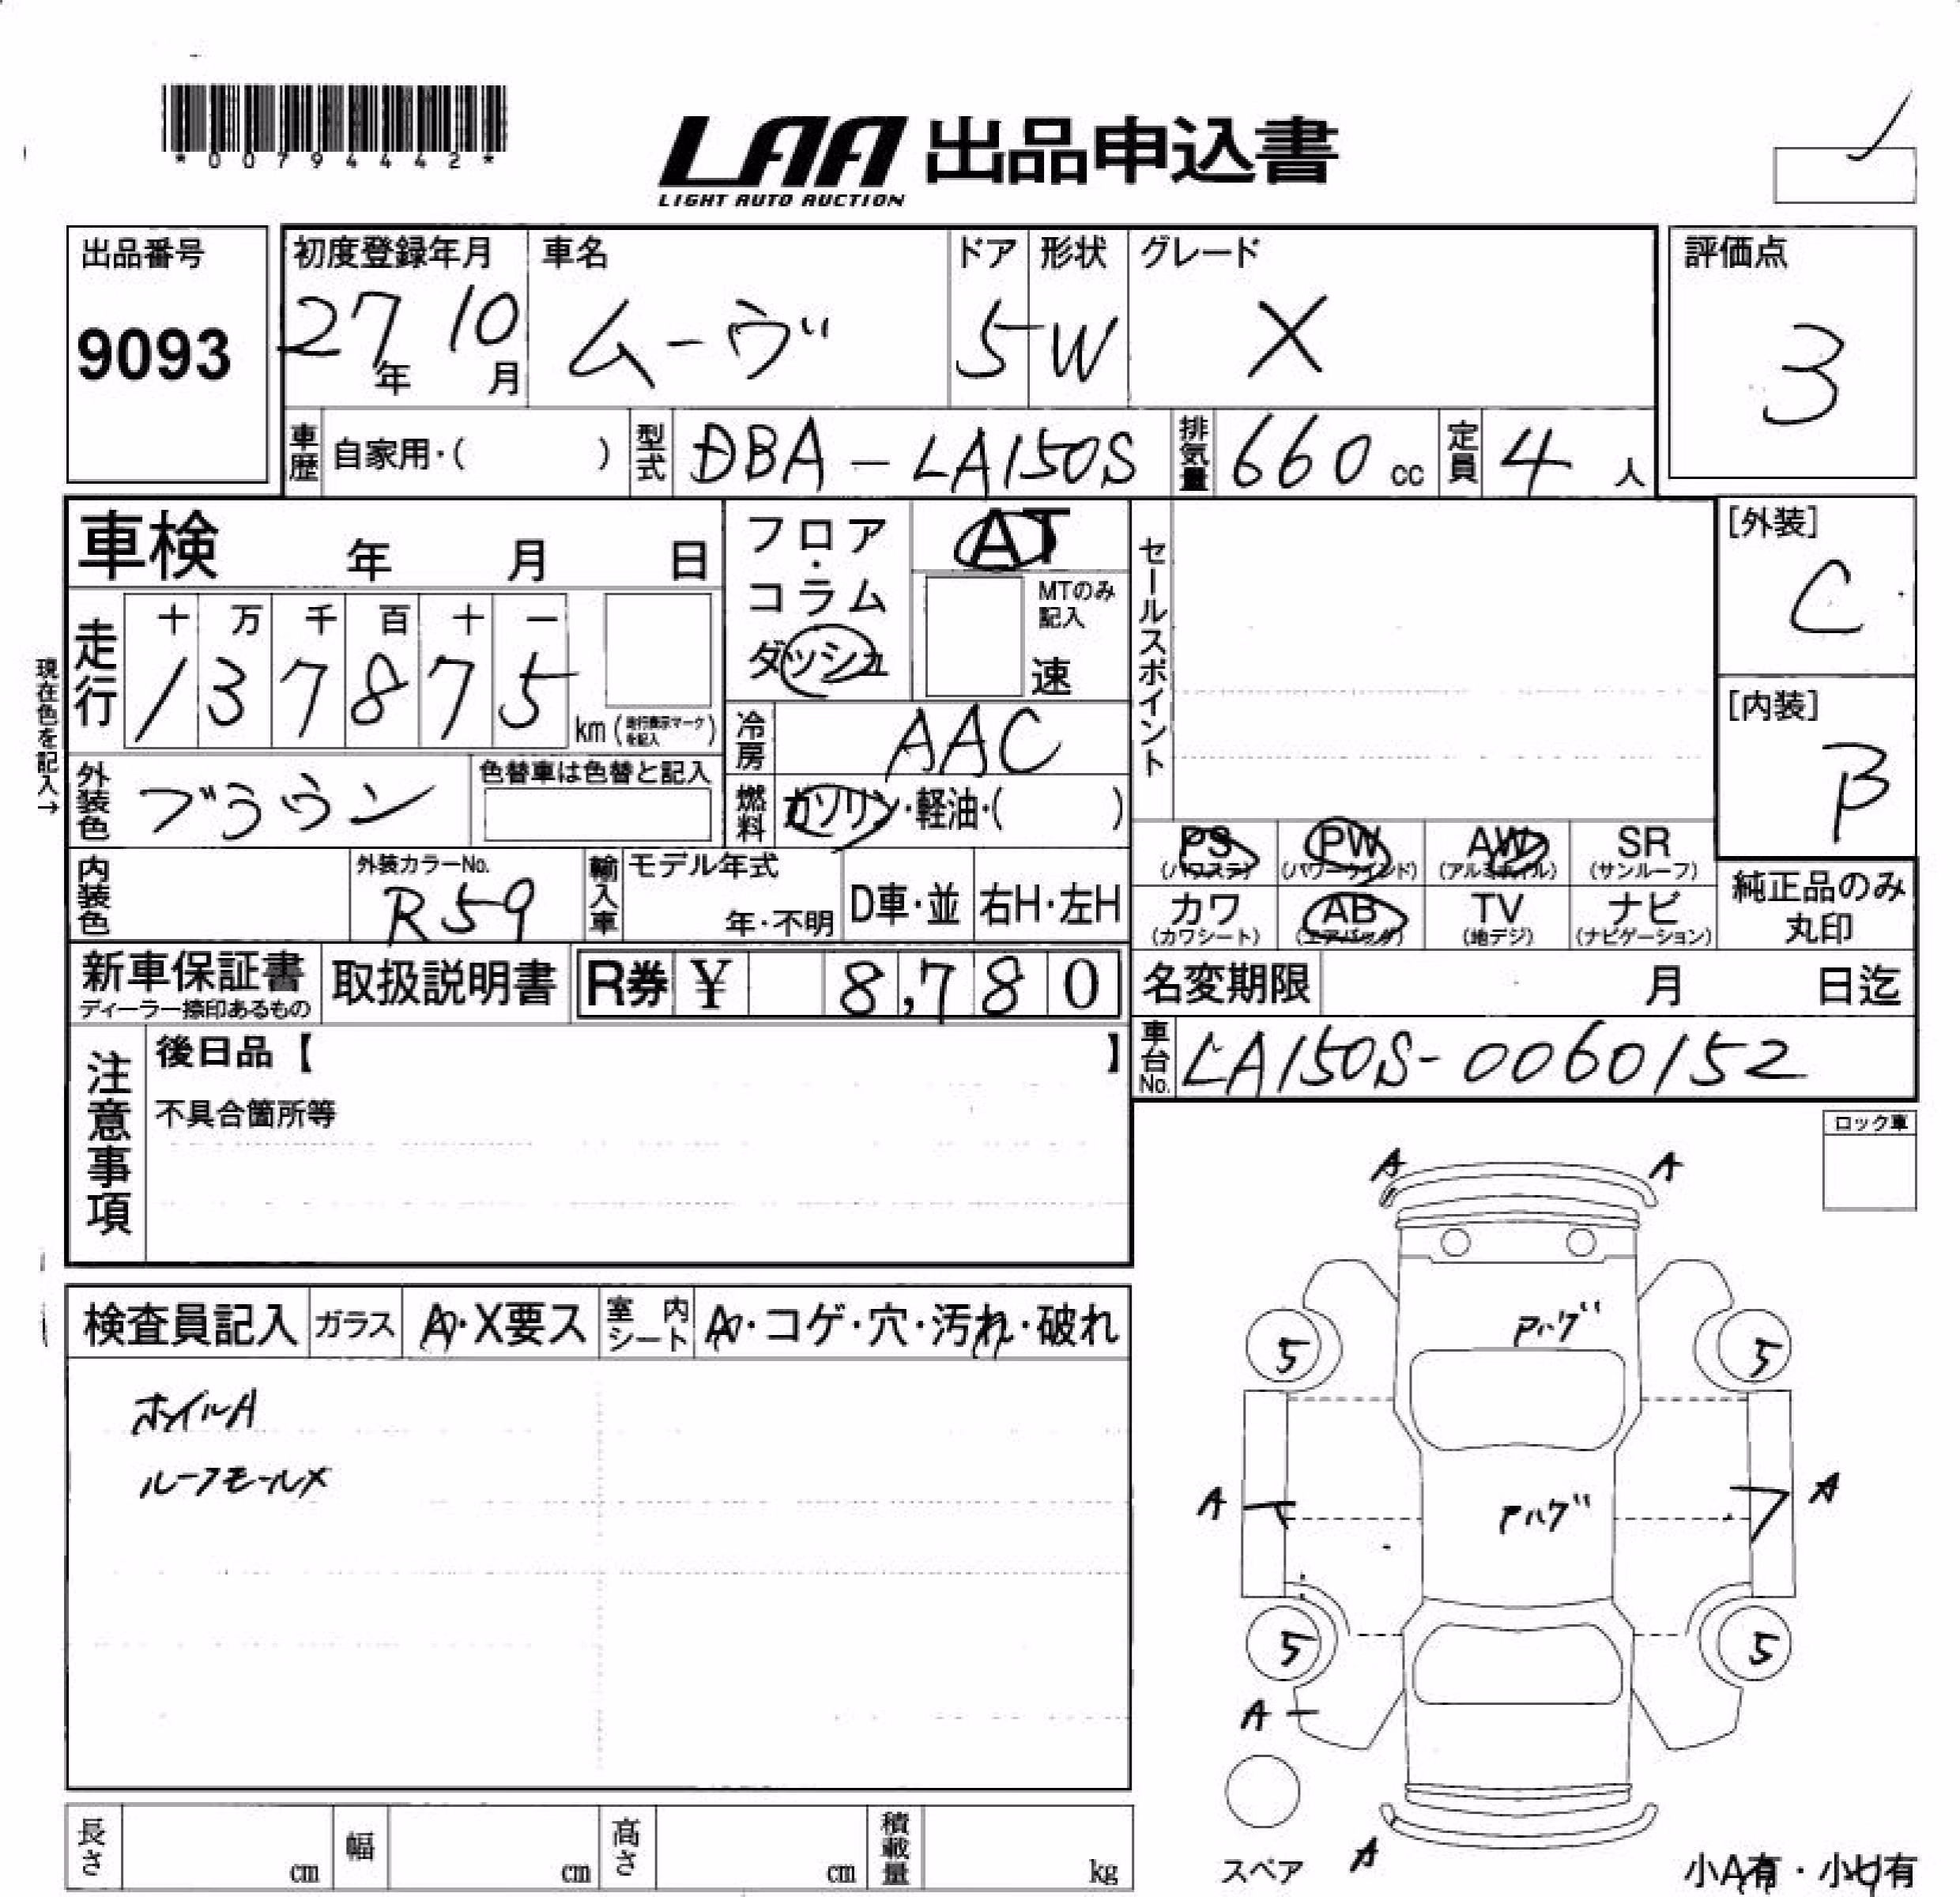 *00794442*
LAA 出品申込書
LIGHT AUTO AUCTION
出品番号
9093
初度登録年月
27年 10月
車名
ムーヴ
ドア
5
形状
W
グレード
X
評価点
3
車歴 自家用・( )
型式 DBA-LA150S
排気量 660 cc
定員 4 人
車検 年 月 日
フロア・コラム
ダッシュ
AT
MTのみ記入
速
セールスポイント
[外装]
C
[内装]
B
現在色を記入→
走行 十 万 千 百 十 一
1 3 7 8 7 5 km (走行表示マークを記入)
冷房 AAC
外装色 ブラウン
色替車は色替と記入
燃料 ガソリン・軽油・( )
PS (パワステ)
PW (パワーウインド)
AW (アルミホイル)
SR (サンルーフ)
カワ (カワシート)
AB (エアバッグ)
TV (地デジ)
ナビ (ナビゲーション)
純正品のみ丸印
内装色
外装カラーNo.
R59
輸入車
モデル年式
年・不明
D車・並
右H・左H
新車保証書
ディーラー捺印あるもの
取扱説明書
R券 ¥ 8,780
名変期限 月 日迄
車台No. LA150S-0060152
注意事項
後日品【 】
不具合箇所等
ロック車
検査員記入
ガラス A・X要ス
室内シート A・コゲ・穴・汚れ・破れ
ホイルA
ルーフモールX
A A
Pハゲ
5 5
A A
Pハゲ
5 5
A
スペア
A
小A有・小U有
長さ cm
幅 cm
高さ cm
積載量 kg